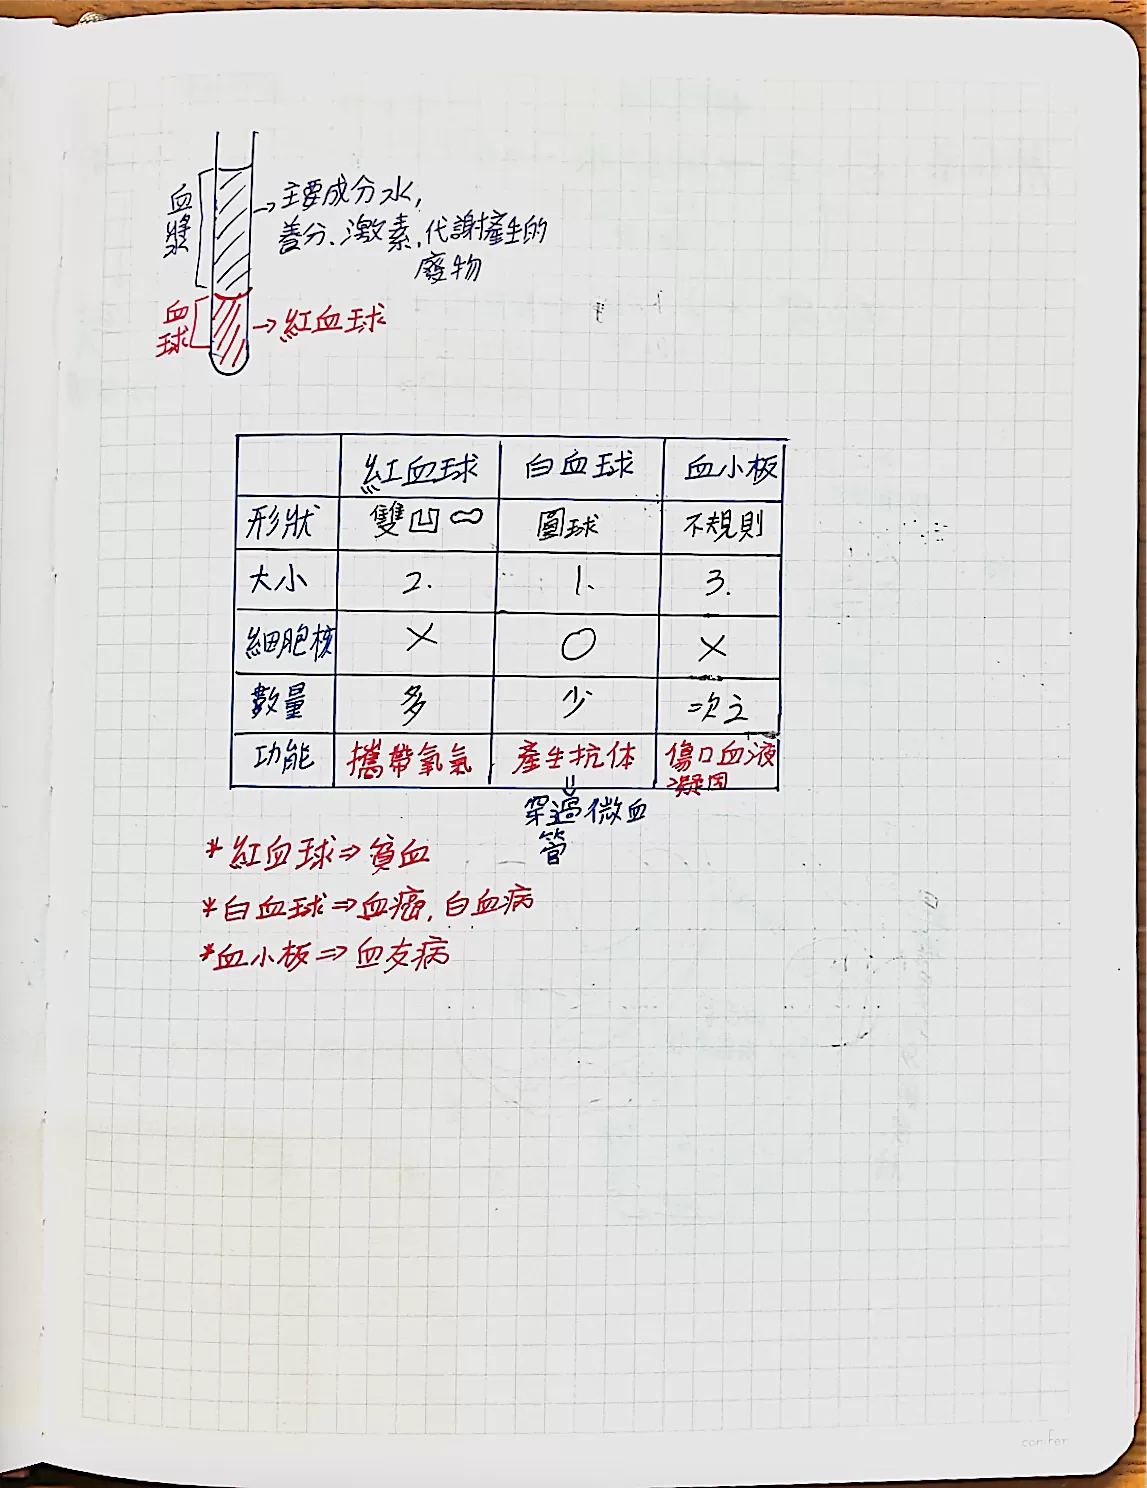 血漿
主要成分水,
養分、激素、代謝產生的
廢物
血球
紅血球
紅血球 白血球 血小板
形狀 雙凹 圓球 不規則
大小 2. 1. 3.
細胞核 × ○ ×
數量 多 少 次之
功能 攜帶氧氣 產生抗体 傷口血液
凝固
穿過微血
管
*紅血球⇒貧血
*白血球⇒血癌,白血病
*血小板⇒血友病
conifer